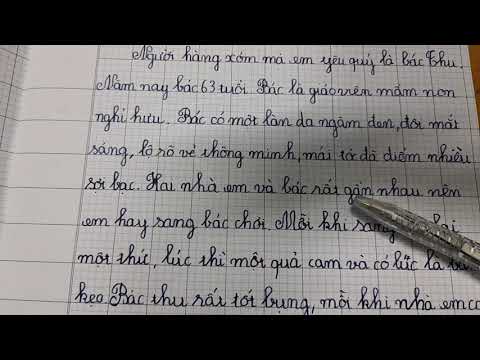 Người hàng xóm mà em yêu quý là bác Thu.
Năm nay bác 63 tuổi. Bác là giáo viên mầm non
nghỉ hưu. Bác có một làn da ngăm đen, đôi mắt
sáng, lộ rõ vẻ thông minh, mái tóc đã điểm nhiều
sợi bạc. Hai nhà em và bác rất gần nhau nên
em hay sang bác chơi. Mỗi khi sang
một thứ, lúc thì một quả cam và có lúc là
kẹo. Bác thu rất tốt bụng, mỗi khi nhà em có